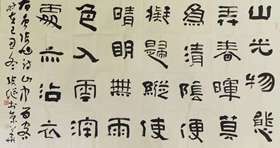 山光物態
弄春暉莫
為輕陰便
擬歸縱使
晴明無雨
色入雲深
處亦沾衣